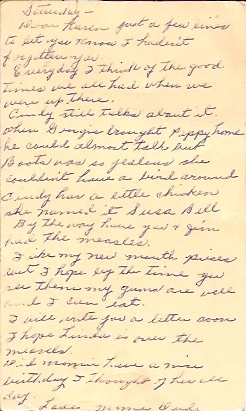 Saturday -
Dear Karen just a few lines
to let you know I hadn't
forgotten you.
Everyday I think of the good
times we all had when we
were up there.
Cindy still talks about it.
When Georgie brought Peppy home
he could almost talk but
Boots was so jealous she
couldn't have a bird around
Cindy has a little chicken
she named it Susa Bell
By the way have you & Jim
had the measles.
I like my new mouth pieces
but I hope by the time you
see them my gums are well
and I can eat.
I will write you a letter soon
I hope Linda is over the
measles.
Did mommie have a nice
birthday I thought of her all
day.
Love